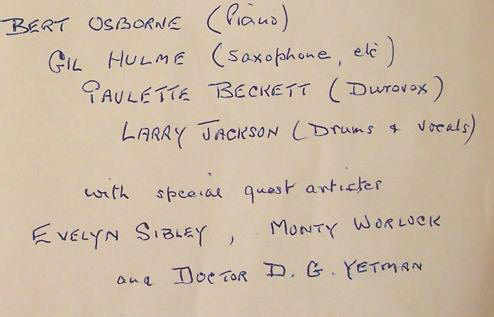 BERT OSBORNE (Piano)
GIL HULME (Saxophone, etc)
PAULETTE BECKETT (Durovox)
LARRY JACKSON (Drums & Vocals)
with special guest artistes
EVELYN SIBLEY, MONTY WORLOCK
and DOCTOR D. G. YETMAN